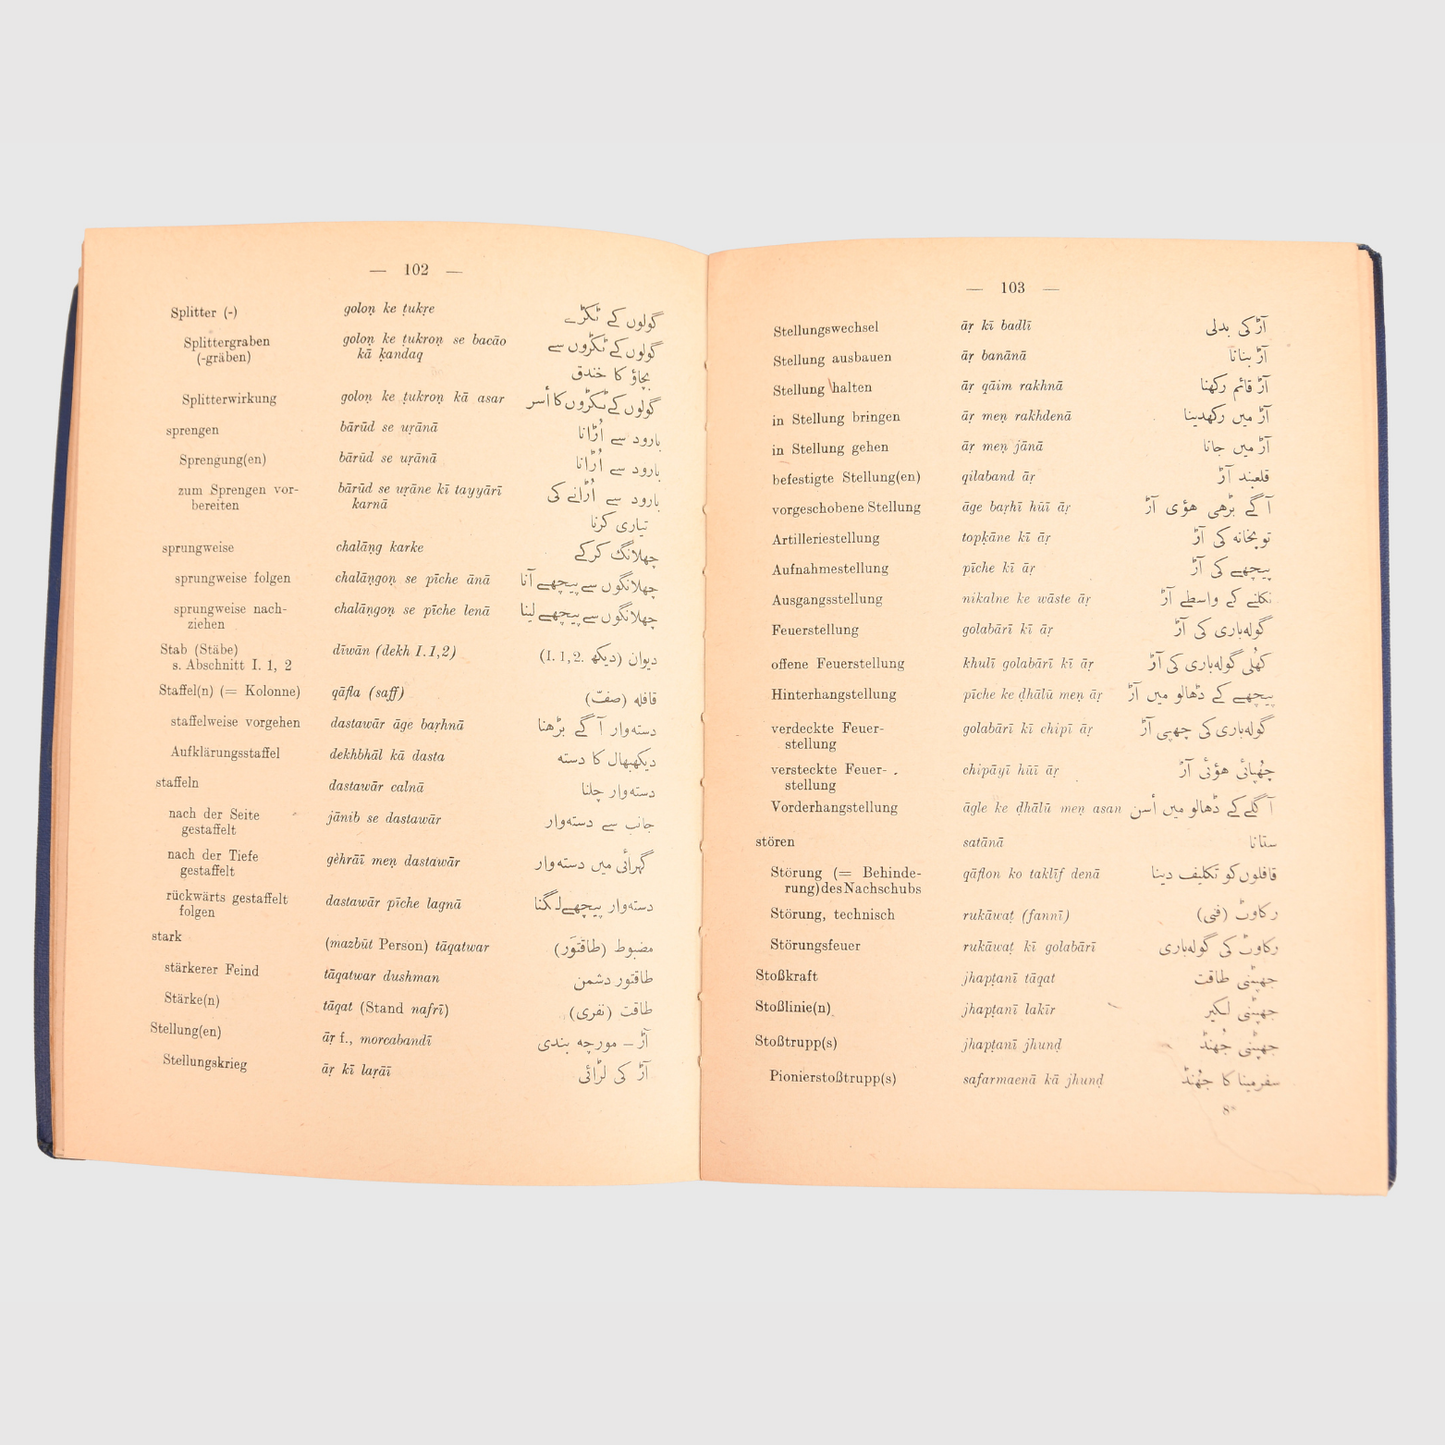 — 102 —
Splitter (-) goloṇ ke ṭukṛe گولوں کے ٹکڑے
Splittergraben golon ke ṭukroṇ se bacāo گولوں کے ٹکڑوں سے
(-gräben) kā ḳandaq
بچاؤ کا خندق
Splitterwirkung golon ke ṭukroṇ kā asar گولوں کے ٹکڑوں کا أسر
sprengen bārūd se uṛānā بارود سے اُڑانا
Sprengung(en) bārūd se uṛānā بارود سے اُڑانا
zum Sprengen vor- bārūd se uṛāne kī tayyārī بارود سے اُڑانے کی
bereiten karnā
تیاری کرنا
sprungweise chalāṇg karke چھلانگ کرکے
sprungweise folgen chalāṇgoṇ se pīche ānā چھلانگوں سے پیچھے آنا
sprungweise nach- chalāṇgoṇ se pīche lenā چھلانگوں سے پیچھے لینا
ziehen
Stab (Stäbe) dīwān (dekh I.1,2) دیوان (دیکھ I. 1,2.)
s. Abschnitt I. 1, 2
Staffel(n) (= Kolonne) qāfla (saff) قافلہ (صفّ)
staffelweise vorgehen dastawār āge baṛhnā دستہ‌وار آگے بڑھنا
Aufklärungsstaffel dekhbhāl kā dasta دیکھبھال کا دستہ
staffeln dastawār calnā دستہ‌وار چلنا
nach der Seite jānib se dastawār جانب سے دستہ‌وار
gestaffelt
nach der Tiefe gèhrāī meṇ dastawār گہرائی میں دستہ‌وار
gestaffelt
rückwärts gestaffelt dastawār pīche lagnā دستہ‌وار پیچھے لگنا
folgen
stark (mazbūt Person) tāqatwar مضبوط (طاقتوَر)
stärkerer Feind tāqatwar dushman طاقتور دشمن
Stärke(n) tāqat (Stand nafrī) طاقت (نفری)
Stellung(en) āṛ f., morcabandī آڑ – مورچہ بندی
Stellungskrieg āṛ kī laṛāī آڑ کی لڑائی
— 103 —
Stellungswechsel āṛ kī badlī آڑ کی بدلی
Stellung ausbauen āṛ banānā آڑ بنانا
Stellung halten āṛ qāim rakhnā آڑ قائم رکھنا
in Stellung bringen āṛ meṇ rakhdenā آڑ میں رکھدینا
in Stellung gehen āṛ meṇ jānā آڑ میں جانا
befestigte Stellung(en) qilaband āṛ قلعبند آڑ
vorgeschobene Stellung āge baṛhī hūī āṛ آگے بڑھی ہوئی آڑ
Artilleriestellung topḳāne kī āṛ توپخانہ کی آڑ
Aufnahmestellung pīche kī āṛ پیچھے کی آڑ
Ausgangsstellung nikalne ke wāste āṛ نکلنے کے واسطے آڑ
Feuerstellung golabārī kī āṛ گولہ‌باری کی آڑ
offene Feuerstellung khulī golabārī kī āṛ کھُلی گولہ‌باری کی آڑ
Hinterhangstellung pīche ke ḍhālū meṇ āṛ پیچھے کے ڈھالو میں آڑ
verdeckte Feuer- golabārī kī chipī āṛ گولہ‌باری کی چھپی آڑ
stellung
versteckte Feuer- chipāyī hūī āṛ چھُپائی ہوئی آڑ
stellung
Vorderhangstellung āgle ke ḍhālū meṇ asan آگلے کے ڈھالو میں أسن
stören satānā ستانا
Störung (= Behinde- qāflon ko taklīf denā قافلوں کو تکلیف دینا
rung) des Nachschubs
Störung, technisch rukāwaṭ (fannī) رکاوٹ (فنی)
Störungsfeuer rukāwaṭ kī golabārī رکاوٹ کی گولہ‌باری
Stoßkraft jhapṭanī tāqat جھپٹنی طاقت
Stoßlinie(n) jhapṭanī lakīr جھپٹنی لکیر
Stoßtrupp(s) jhapṭanī jhunḍ جھپٹنی جھُنڈ
Pionierstoßtrupp(s) safarmaenā kā jhunḍ سفرمینا کا جھُنڈ
8*